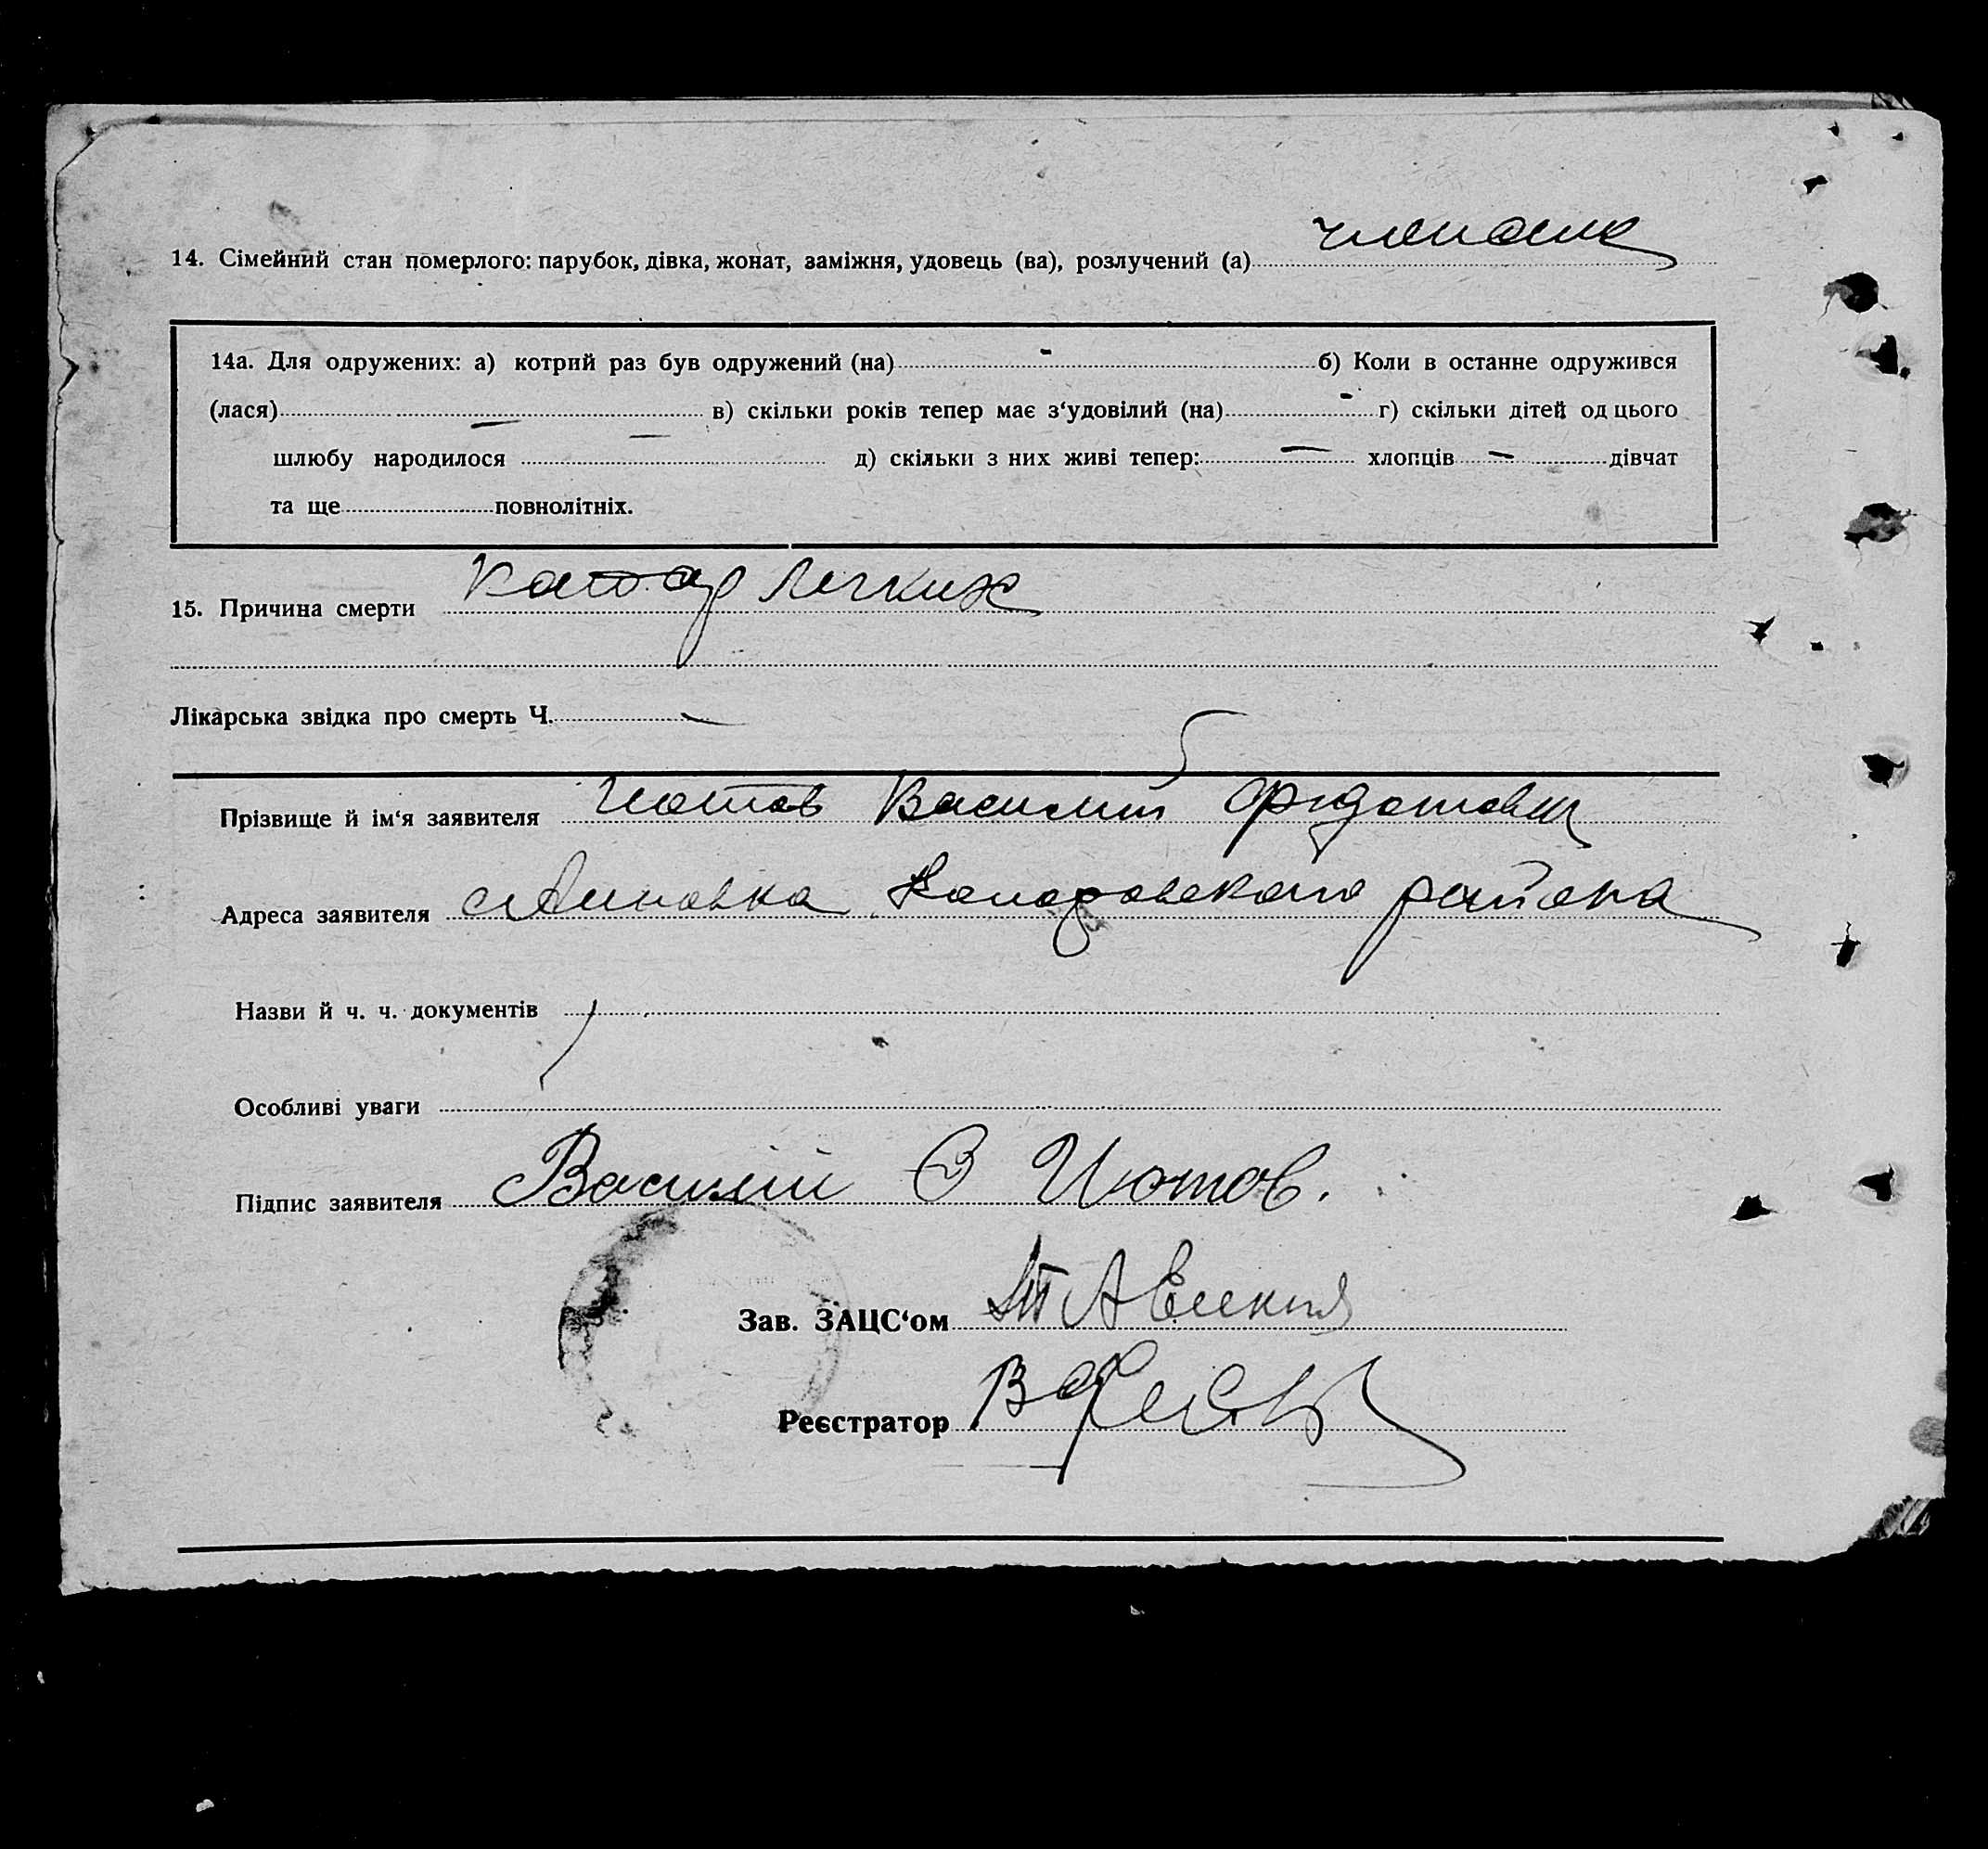 14. Сімейний стан померлого: парубок, дівка, жонат, заміжня, удовець (ва), розлучений (а)
14а. Для одружених: а) котрий раз був одружений (на) - б) Коли в останне одружився
(лася) — в) скільки років тепер має з‘удовілий (на) - г) скільки дітей од цього
шлюбу народилося — д) скільки з них живі тепер: — хлопців — дівчат
та ще повнолітніх.
15. Причина смерти Катар легких
Лікарська звідка про смерть Ч. —
Прізвище й ім‘я заявителя Чотов Василий Федотович
Адреса заявителя района
Назви й ч. ч. документів
Особливі уваги
Підпис заявителя Василий Чотов.
Зав. ЗАЦС‘ом
Реєстратор